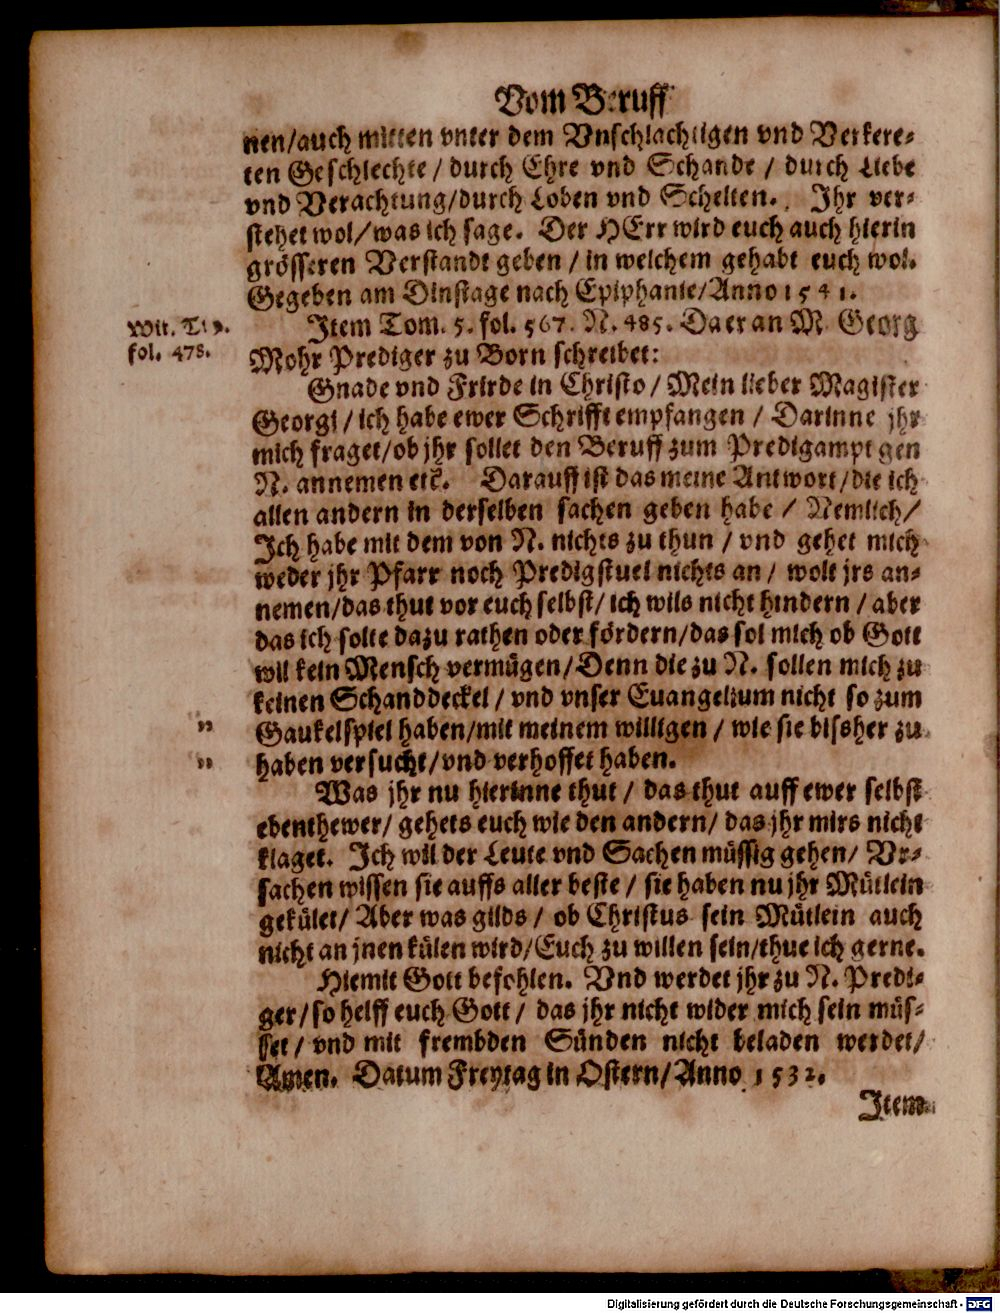 Vom Beruff
nen/auch mitten vnter dem Vnschlachtigen vnd Verkere-
ten Geschlechte / durch Ehre vnd Schande / durch Liebe
vnd Verachtung/durch Loben vnd Schelten. Ihr ver-
stehet wol/was ich sage. Der HErr wird euch auch hierin
grösseren Verstandt geben / in welchem gehabt euch wol.
Gegeben am Dinstage nach Epiphanie/Anno 1541.
Item Tom. 5. fol. 567. N. 485. Da er an M. Georg
Mohr Prediger zu Born schreibet:
Wit. T. 9.
fol. 478.
Gnade vnd Fride in Christo / Mein lieber Magister
Georgi / ich habe ewer Schrifft empfangen / Darinne jhr
mich fraget/ob jhr sollet den Beruff zum Predigampt gen
N. annemen etc. Darauff ist das meine Antwort/die ich
allen andern in derselben sachen geben habe / Nemlich/
Ich habe mit dem von N. nichts zu thun / vnd gehet mich
weder jhr Pfarr noch Predigstuel nichts an / wolt jrs an-
nemen/das thut vor euch selbst/ ich wils nicht hindern / aber
das ich solte dazu rathen oder fördern/das sol mich ob Gott
wil kein Mensch vermügen/Denn die zu N. sollen mich zu
keinen Schanddeckel / vnd vnser Euangelium nicht so zum
" Gaukelspiel haben/mit meinem willigen / wie sie bissher zu
" haben versucht/vnd verhoffet haben.
Was jhr nu hierinne thut / das thut auff ewer selbst
ebenthewer/ gehets euch wie den andern/ das jhr mirs nicht
klaget. Ich wil der Leute vnd Sachen müssig gehen/ Vr-
sachen wissen sie auffs aller beste / sie haben nu jhr Mütlein
gekület/ Aber was gilds / ob Christus sein Mütlein auch
nicht an jnen külen wird/Euch zu willen sein/thue ich gerne.
Hiemit Gott befohlen. Vnd werdet jhr zu N. Predi-
ger/so helff euch Gott / das jhr nicht wider mich sein müs-
set / vnd mit frembden Sünden nicht beladen werdet/
Amen. Datum Freytag in Ostern/Anno 1532.
Item
Digitalisierung gefördert durch die Deutsche Forschungsgemeinschaft - DFG